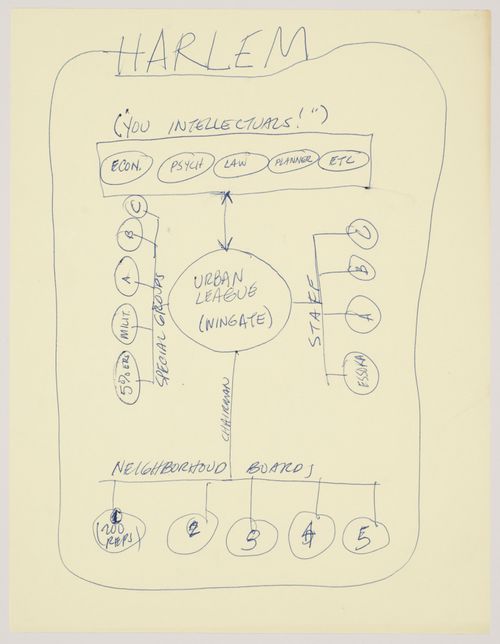 HARLEM
("YOU INTELLECTUALS!")
ECON. PSYCH LAW PLANNER ETC
C
B
A
MILIT.
5%ERS
SPECIAL GROUPS
URBAN
LEAGUE
(WINGATE)
STAFF
C
B
A
ESSOKA
CHAIRMAN
NEIGHBORHOOD BOARDS
1
(200
REPS)
2
3
4
5